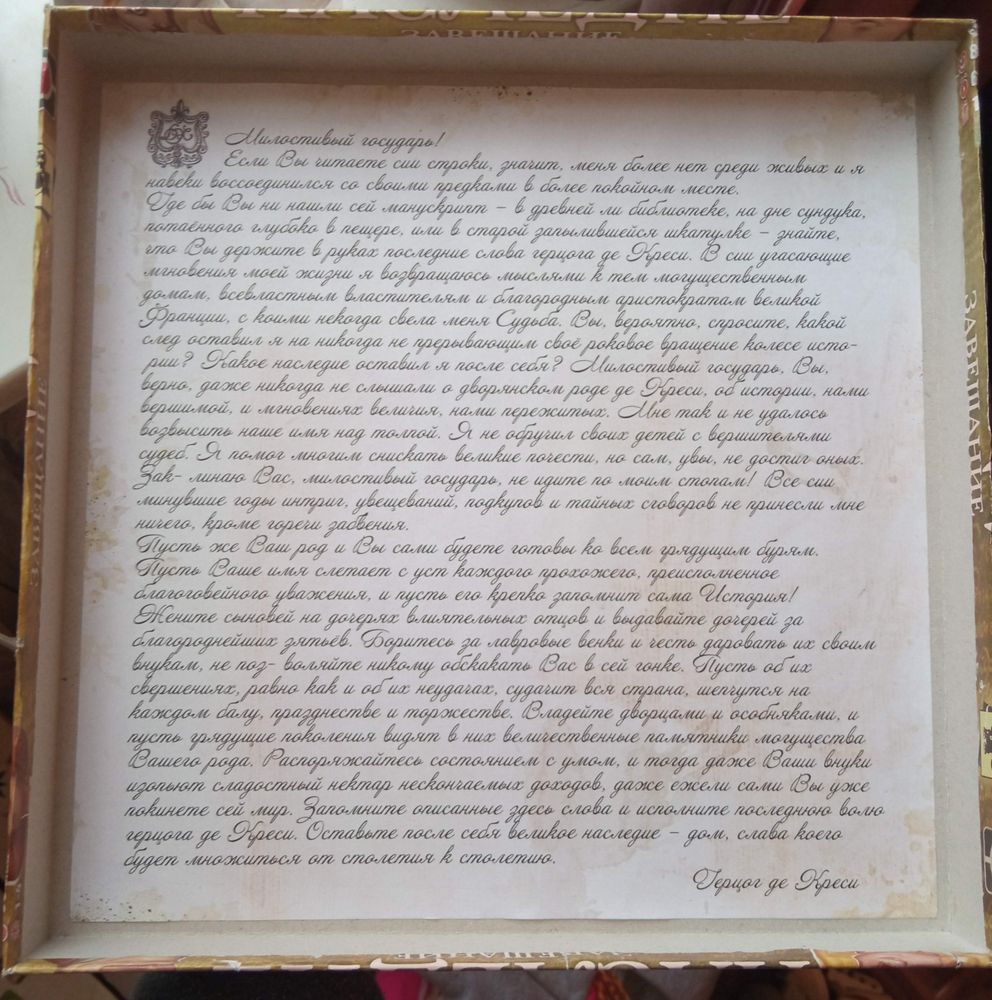 НАСЛЕДИЕ
ЗАВЕЩАНИЕ
Милостивый государь!
Если Вы читаете сии строки, значит, меня более нет среди живых и я
навеки воссоединился со своими предками в более покойном месте.
Где бы Вы ни нашли сей манускрипт – в древней ли библиотеке, на дне сундука,
потаённого глубоко в пещере, или в старой запылившейся шкатулке – знайте,
что Вы держите в руках последние слова герцога де Креси. В сии угасающие
мгновения моей жизни я возвращаюсь мыслями к тем могущественным
домам, всевластным властителям и благородным аристократам великой
Франции, с коими некогда свела меня Судьба. Вы, вероятно, спросите, какой
след оставил я на никогда не прерывающим своё роковое вращение колесе исто-
рии? Какое наследие оставил я после себя? Милостивый государь, Вы,
верно, даже никогда не слышали о дворянском роде де Креси, об истории, нами
вершимой, и мгновениях величия, нами пережитых. Мне так и не удалось
возвысить наше имя над толпой. Я не обручил своих детей с вершителями
судеб. Я помог многим снискать великие почести, но сам, увы, не достиг оных.
Зак- линаю Вас, милостивый государь, не идите по моим стопам! Все сии
минувшие годы интриг, увещеваний, подкупов и тайных сговоров не принесли мне
ничего, кроме горечи забвения.
Пусть же Ваш род и Вы сами будете готовы ко всем грядущим бурям.
Пусть Ваше имя слетает с уст каждого прохожего, преисполненное
благоговейного уважения, и пусть его крепко запомнит сама История!
Жените сыновей на дочерях влиятельных отцов и выдавайте дочерей за
благороднейших зятьёв. Боритесь за лавровые венки и честь даровать их своим
внукам, не поз- воляйте никому обскакать Вас в сей гонке. Пусть об их
свершениях, равно как и об их неудачах, судачит вся страна, шепчутся на
каждом балу, празднестве и торжестве. Владейте дворцами и особняками, и
пусть грядущие поколения видят в них величественные памятники могущества
Вашего рода. Распоряжайтесь состоянием с умом, и тогда даже Ваши внуки
изопьют сладостный нектар нескончаемых доходов, даже ежели сами Вы уже
покинете сей мир. Запомните описанные здесь слова и исполните последнюю волю
герцога де Креси. Оставьте после себя великое наследие – дом, слава коего
будет множиться от столетия к столетию.
Герцог де Креси
ЗАВЕЩАНИЕ
ЗАВЕЩАНИЕ
ЗАВЕЩАНИЕ